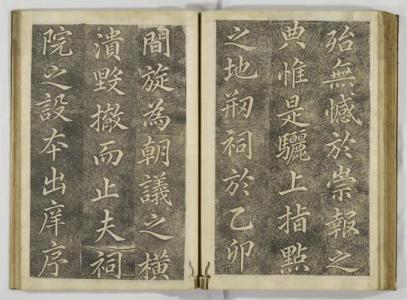 殆無憾於崇報之
典惟是驪上指點
之地刱祠於乙卯
間旋為朝議之橫
潰毀撤而止夫祠
院之設本出庠序